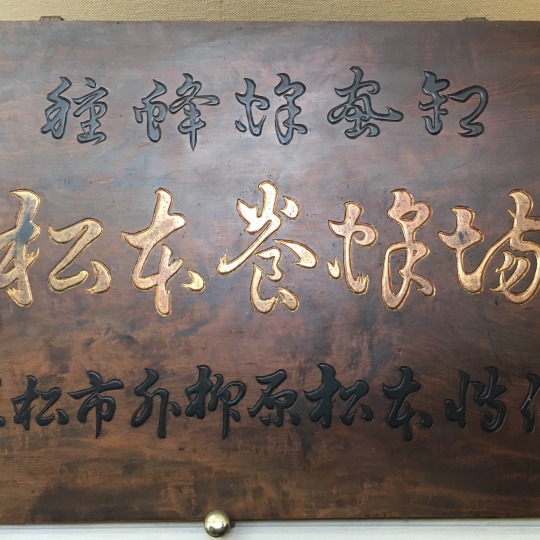 種蜂蜂蜜卸
松本養蜂場
松市外柳原松本